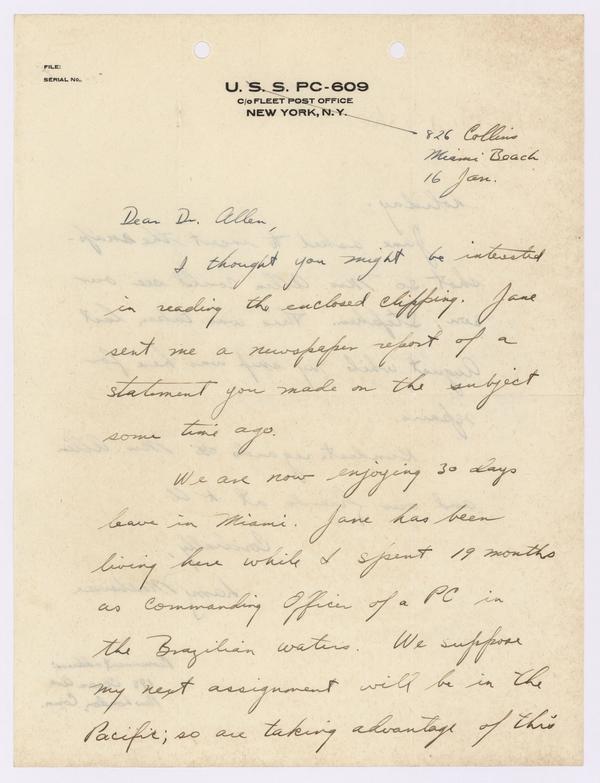 FILE:
SERIAL No.
U. S. S. PC-609
C/O FLEET POST OFFICE
NEW YORK, N. Y.
826 Collins
Miami Beach
16 Jan.
Dear Dr. Allen,
I thought you might be interested
in reading the enclosed clipping. Jane
sent me a newspaper report of a
statement you made on the subject
some time ago.
We are now enjoying 30 days
leave in Miami. Jane has been
living here while I spent 19 months
as Commanding Officer of a PC in
the Brazilian waters. We suppose
my next assignment will be in the
Pacific; so are taking advantage of this